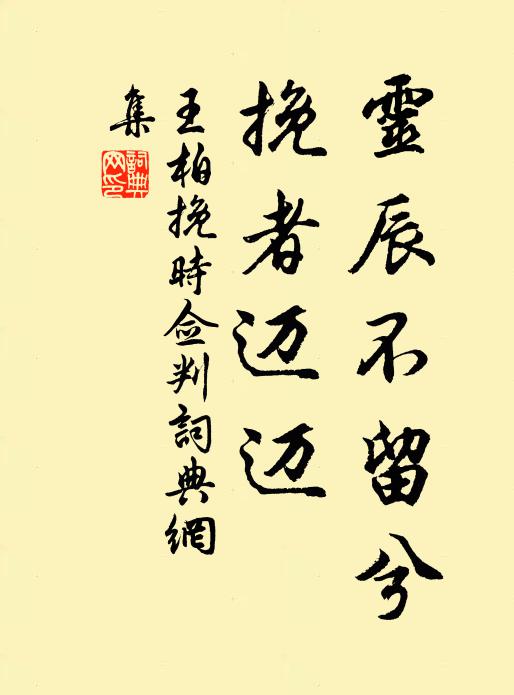 靈辰不留兮
挽者迈迈
王柏挽時佥判詞典網
集
詞典
网印